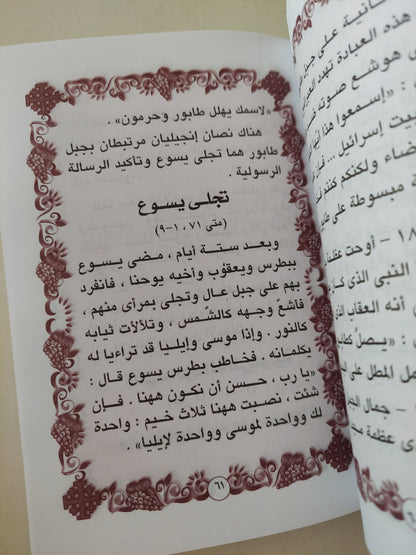 «لاسمك يهلل طابور وحرمون» .
هناك نصان إنجيليان مرتبطان بجبل
طابور هما تجلى يسوع وتأكيد الرسالة
الرسولية .
تجلى يسوع
(متى ٧١، ١-٩)
وبعد ستة أيام ، مضى يسوع
ببطرس ويعقوب وأخيه يوحنا ، فانفرد
بهم على جبل عال وتجلى بمرأى منهم ،
فأشع وجهه كالشمس ، وتلألأت ثيابه
كالنور . وإذا موسى وإيليا قد تراءيا له
يكلمانه . فخاطب بطرس يسوع قال :
«يا رب ، حسن أن نكون ههنا . فإن
شئت ، نصبت ههنا ثلاث خيم : واحدة
لك وواحدة لموسى وواحدة لإيليا» .
٦١
انية على جبل
هذه العبادة تهد
هوشع صوته
: «إسمعوا هذا أيها
بيت إسرائيل ...
ضاء ولكنكم كنتم
مبسوطة على طابور
١٨ – أوحت
النبى الذى كان
أنه العقاب الذى
: «يصل كما
المطل على
– جمال الجبل
عظمة